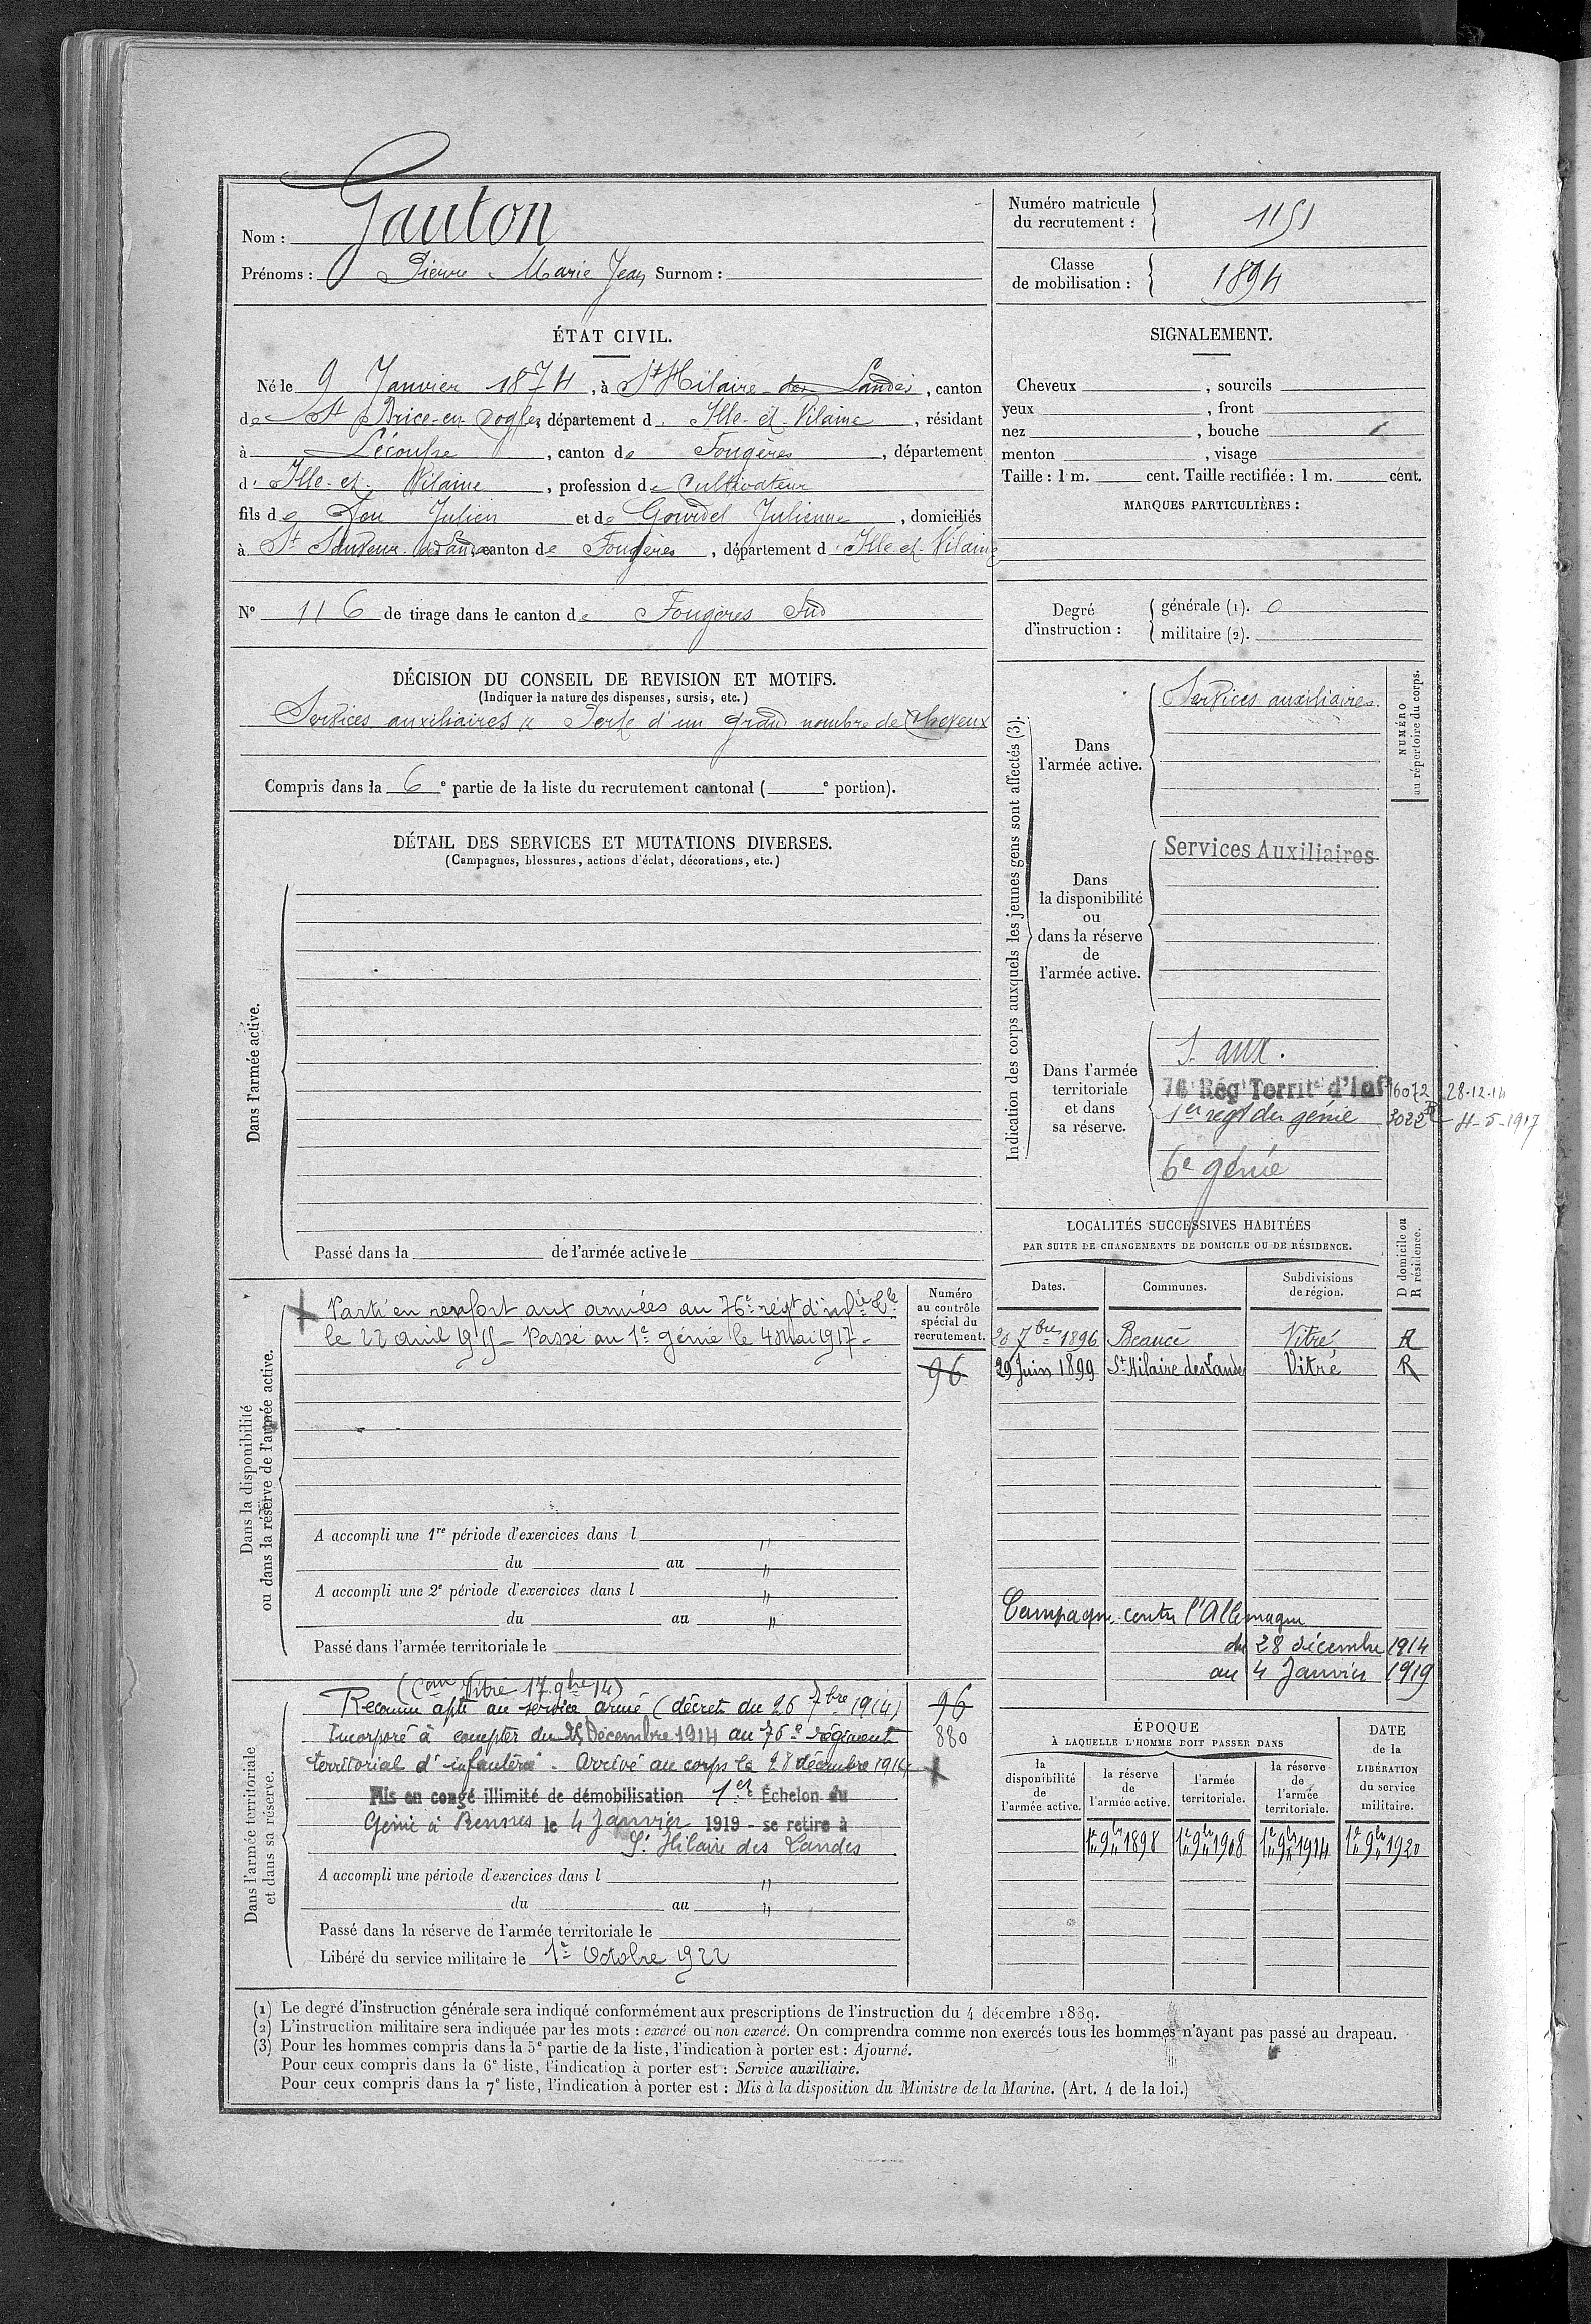 Nom : Gauton
Prénoms : Pierre Marie Jean Surnom :
Numéro matricule du recrutement : 1151
Classe de mobilisation : 1894
ÉTAT CIVIL.
Né le 9 Janvier 1874, à St Hilaire-des Landes, canton
de St Brice-en-Cogles, département d'Ille-et-Vilaine, résidant
à Lécousse, canton de Fougères, département
d'Ille-et-Vilaine, profession de Cultivateur
fils de feu Julien et de Gourdel Julienne, domiciliés
à St Sauveur des Landes, canton de Fougères, département d'Ille-et-Vilaine
N° 116 de tirage dans le canton de Fougères Sud
SIGNALEMENT.
Cheveux , sourcils
yeux , front
nez , bouche
menton , visage
Taille : 1 m. cent. Taille rectifiée : 1 m. cent.
MARQUES PARTICULIÈRES :
Degré d'instruction : générale (1). 0
militaire (2).
DÉCISION DU CONSEIL DE REVISION ET MOTIFS.
(Indiquer la nature des dispenses, sursis, etc.)
Services auxiliaires « Perte d'un grand nombre de cheveux
Compris dans la 6e partie de la liste du recrutement cantonal ( e portion).
DÉTAIL DES SERVICES ET MUTATIONS DIVERSES.
(Campagnes, blessures, actions d'éclat, décorations, etc.)
Dans l'armée active.
Passé dans la de l'armée active le
Indication des corps auxquels les jeunes gens sont affectés (3).
NUMÉRO au répertoire du corps.
Dans l'armée active.
Services auxiliaires.
Dans la disponibilité ou dans la réserve de l'armée active.
Services Auxiliaires
Dans l'armée territoriale et dans sa réserve.
S. aux.
76e Régt Territal d'Inf 16072 28-12-14
1er regt du génie 3022 4-5-1917
6e génie
Dans la disponibilité ou dans la réserve de l'armée active.
Numéro au contrôle spécial du recrutement.
Parti en renfort aux armées au 76e régt d'infie tle
le 22 avril 1915 - Passé au 1er génie le 4 mai 1917 -
96
A accompli une 1re période d'exercices dans l "
du au "
A accompli une 2e période d'exercices dans l "
du au "
Passé dans l'armée territoriale le
LOCALITÉS SUCCESSIVES HABITÉES
PAR SUITE DE CHANGEMENTS DE DOMICILE OU DE RÉSIDENCE.
D domicile ou R résidence.
Dates. Communes. Subdivisions de région.
20 7bre 1896 Beaucé Vitré R
29 Juin 1899 St Hilaire des Landes Vitré R
Campagne contre l'Allemagne
du 28 décembre 1914
au 4 Janvier 1919
Dans l'armée territoriale et dans sa réserve.
(Con Vitré 17 9bre 14)
Reconnu apte au service armé (décret du 26 7bre 1914) 96
Incorporé à compter du 25 Décembre 1914 au 76e régiment 880
territorial d'infanterie. Arrivé au corps le 28 décembre 1914
Mis en congé illimité de démobilisation 1er Échelon du
Génie à Rennes le 4 Janvier 1919 - se retire à
St Hilaire des Landes
A accompli une période d'exercices dans l "
du au "
Passé dans la réserve de l'armée territoriale le
Libéré du service militaire le 1er Octobre 1922
ÉPOQUE À LAQUELLE L'HOMME DOIT PASSER DANS
DATE de la LIBÉRATION du service militaire.
la disponibilité de l'armée active.
la réserve de l'armée active.
l'armée territoriale.
la réserve de l'armée territoriale.
1er 9bre 1898 1er 9bre 1908 1er 9bre 1914 1er 9bre 1920
(1) Le degré d'instruction générale sera indiqué conformément aux prescriptions de l'instruction du 4 décembre 1889.
(2) L'instruction militaire sera indiquée par les mots : exercé ou non exercé. On comprendra comme non exercés tous les hommes n'ayant pas passé au drapeau.
(3) Pour les hommes compris dans la 5e partie de la liste, l'indication à porter est : Ajourné.
Pour ceux compris dans la 6e liste, l'indication à porter est : Service auxiliaire.
Pour ceux compris dans la 7e liste, l'indication à porter est : Mis à la disposition du Ministre de la Marine. (Art. 4 de la loi.)